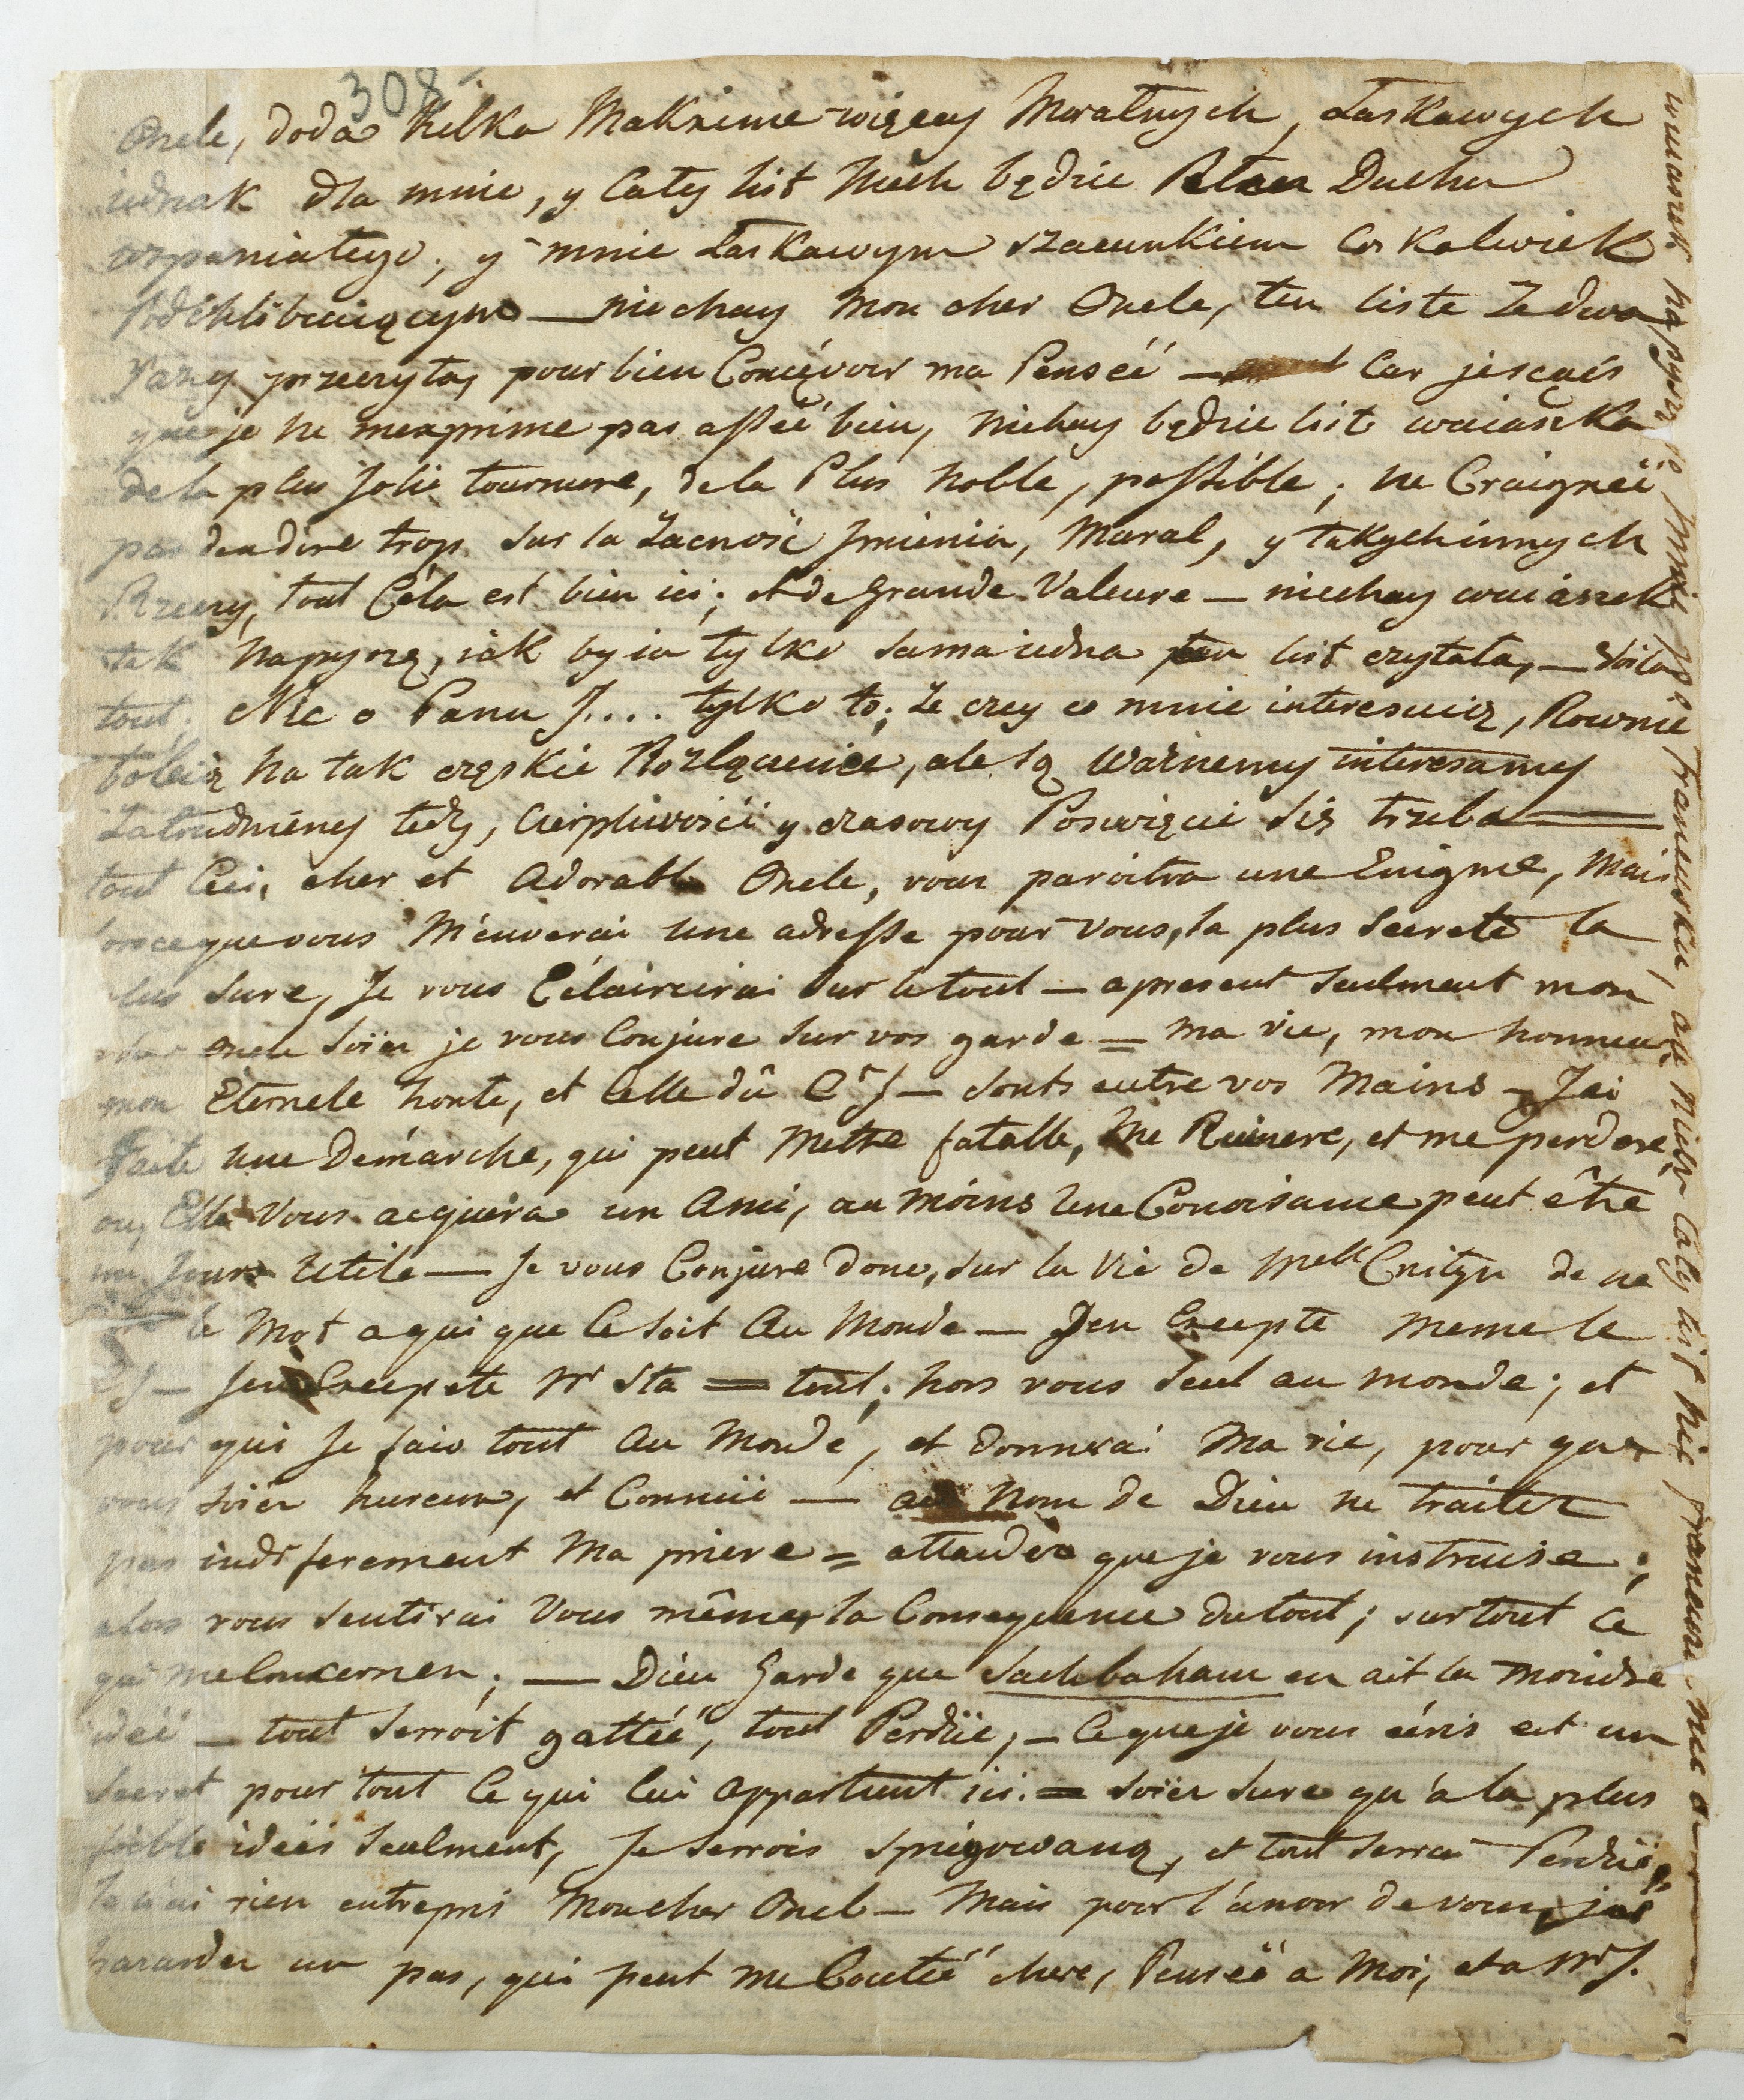 308
Oncle, doda kilka Maksime więcey Moralnych, Łaskawych
iednak dla mnie, y Cały list Niech będzie Pełen Ducha
wspaniałego, y mnie Łaskawym szacunkiem Coskolwiek
Podchlibuiącym — niechay Mon cher Oncle, ten liste Ze dwa
razy przeczyta, pour bien Conçévoir ma Penséé — Car je sçais
que je ne mexprime pas assèé bien, Niehay będzie list wuiaszka
de la plus Jolie tournure, de la Plus Noble, possible; ne Craignéé
pas den dire trop sur la Zacność Jmienia, Moral, y takych innych
Rzeczy, tout Céla est bien ici; et de Grande Valeure — niechay wuiaszek
tak Napyszę, iák by ia tylko Sama iedna ten list czytała, — Voila
tout. Nic o Panu J.... tylko to; Ze czy co mnie interesuią, Rownie
boleią Na tak częskie Rozłączenice, ale Są Ważnemy interesamy
Zatrudnieny tedy, Cierpliwości y czasowy Poswięcić Się trzeba —
tout Ceci, cher et Adorable Oncle, vous paroitra une Enigme, Mais
lorsceque vous M'enverai Une adresse pour Vous, la plus Secrete la
plus Sure, Je vous Eclaircirai Sur le tout — apresent Seulment mon
cher Oncle Soïez je vous Conjure Sur vos garde = Ma vie, mon honneur
mon Eternele honte, et Celle dû Cr J — Sonts entre vos Mains — J'ai
Faite Une Démarche, qui peut Mettre fatalle, Me Ruinere, et me perdere,
ou, Elle Vous acquiéra un Ami, au moins Une Conoisance peut être
un Jour Utile — Je vous Conjure donc, Sur la Vie de Melle Cnitzn de ne
le Mot a qui que Ce Soit Au Monde — Jen Excepte meme le
Cr J — Jen Excepete Mr Sta = tout; hors vous Seul au monde; et
pour qui Je fais tout Au Monde, et donnerai Ma vie, pour que
vous Soïez hureux, et Connüe — au Nom de Dieu ne traitez
pas indiferement Ma priere = attandez que je vous instruise;
alors vous Sentirai Vous même, la Consequence du tout; surtout Ce
qui me Concernen; — Dieu Garde que Sadebaham en ait la moindre
ideé — tout Serroit gattéé, tout Perdüe, — Ce que je vous écris est un
Secret pour tout Ce qui lui appartient ici. = Soïez Sure qu'a la plus
foible ideés Seulment, Je Serrois Spiegowaną, et tout Serra Perdüe,
Je n'ai rien entrepris Mon cher Oncl — Mais pour l'amour de vous, jai
hazarder un pas, qui peut me Coutéé chere, Penséé a Moi, et a Mr J.
wuiaszek Napysze do mnie po Francusku, ale Niech Cały list Nie francusku